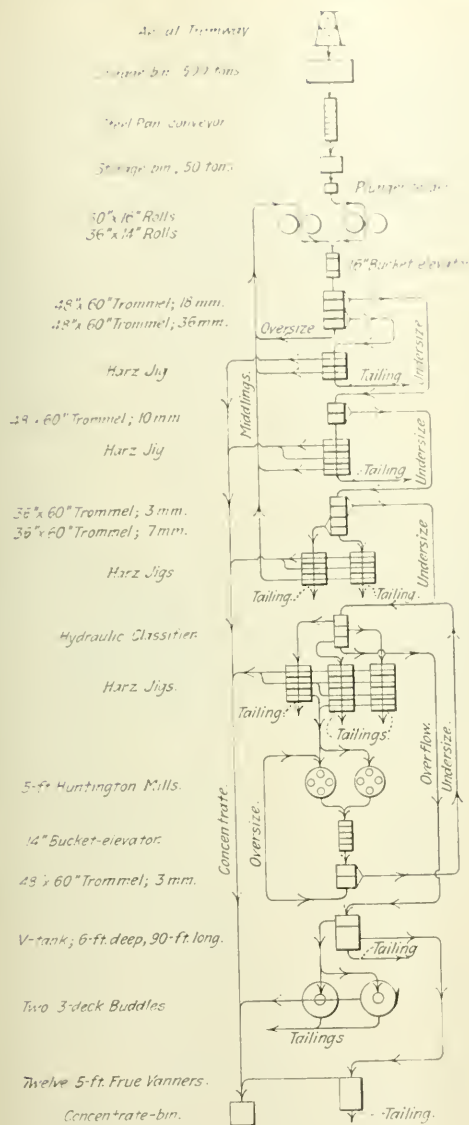 Tramway
bin, 500 tons
Steel Pan Conveyor
Storage bin, 50 tons
Plunger
"x 16" Rolls
36"x 14" Rolls
16" Bucket-elevator
48"x 60" Trommel; 18 mm.
48"x 60" Trommel; 36 mm.
Oversize
Undersize
Harz Jig
Tailing
Middlings.
60" Trommel; 10 mm
Harz Jig
Tailing
Undersize
36"x 60" Trommel; 3 mm.
36"x 60" Trommel; 7 mm.
Undersize
Harz Jigs
Tailing.
Tailing.
Hydraulic Classifier.
Harz Jigs.
Tailing.
Tailings.
Overflow.
Undersize.
5-ft Huntington Mills.
Oversize.
Concentrate.
14" Bucket-elevator.
48"x 60" Trommel; 3 mm.
V-tank; 6-ft. deep, 90-ft. long.
Tailing
Two 3-deck Buddles
Tailings
Twelve 5-ft. Frue Vanners.
Concentrate-bin.
Tailing.